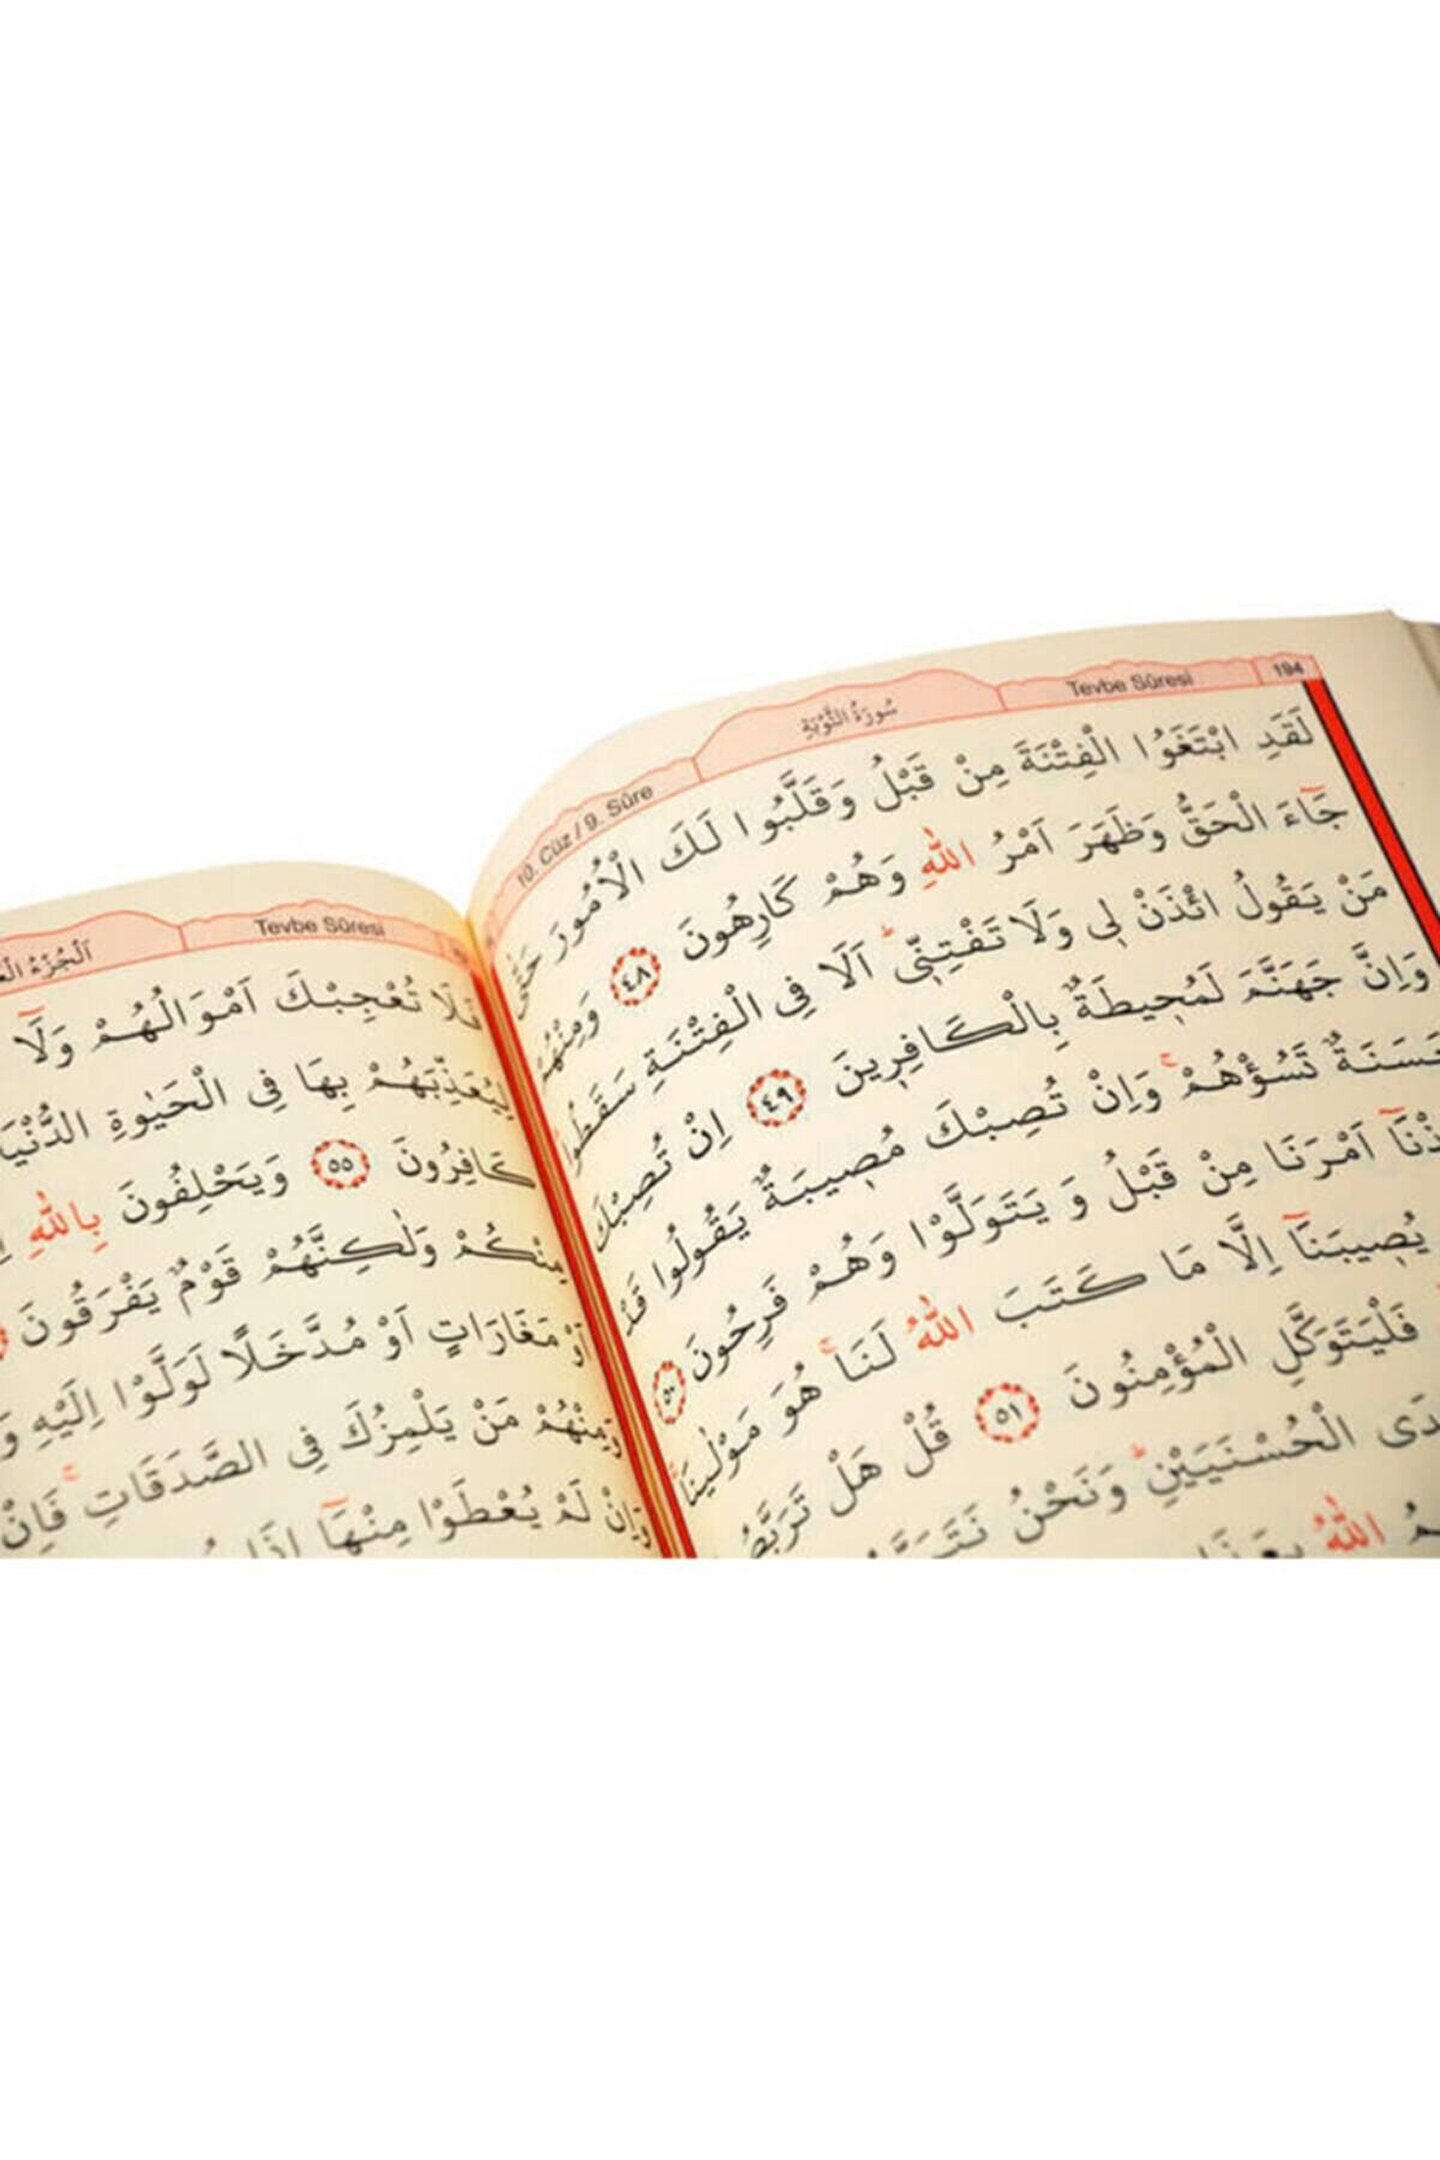 194 Tevbe Sûresi سُورَةُ التَّوْبَةِ 10. Cüz / 9. Sûre
لَقَدِ ابْتَغَوُا الْفِتْنَةَ مِنْ قَبْلُ وَقَلَّبُوا لَكَ الْاُمُورَ حَتّٰى
جَٓاءَ الْحَقُّ وَظَهَرَ اَمْرُ اللّٰهِ وَهُمْ كَارِهُونَ ٤٨ وَمِنْهُمْ
مَنْ يَقُولُ ائْذَنْ ل۪ي وَلَا تَفْتِنّ۪يۜ اَلَا فِي الْفِتْنَةِ سَقَطُواۜ
وَاِنَّ جَهَنَّمَ لَمُح۪يطَةٌ بِالْكَافِر۪ينَ ٤٩ اِنْ تُصِبْكَ
حَسَنَةٌ تَسُؤْهُمْۚ وَاِنْ تُصِبْكَ مُص۪يبَةٌ يَقُولُوا قَدْ
اَمْرَنَا مِنْ قَبْلُ وَيَتَوَلَّوْا وَهُمْ فَرِحُونَ ٥٠
يُص۪يبَنَٓا اِلَّا مَا كَتَبَ اللّٰهُ لَنَاۚ هُوَ مَوْلٰينَاۚ
فَلْيَتَوَكَّلِ الْمُؤْمِنُونَ ٥١ قُلْ هَلْ تَرَبَّصُ
الْحُسْنَيَيْنِۜ وَنَحْنُ
اللّٰهُ
Tevbe Sûresi اَلْجُزْءُ
فَلَا تُعْجِبْكَ اَمْوَالُهُمْ وَلَٓا
لِيُعَذِّبَهُمْ بِهَا فِي الْحَيٰوةِ الدُّنْيَا
كَافِرُونَ ٥٥ وَيَحْلِفُونَ بِاللّٰهِ
مِنْكُمْ وَلٰكِنَّهُمْ قَوْمٌ يَفْرَقُونَ
اَوْ مَغَارَاتٍ اَوْ مُدَّخَلًا لَوَلَّوْا اِلَيْهِ
وَمِنْهُمْ مَنْ يَلْمِزُكَ فِي الصَّدَقَاتِۚ فَاِنْ
وَاِنْ لَمْ يُعْطَوْا مِنْهَٓا